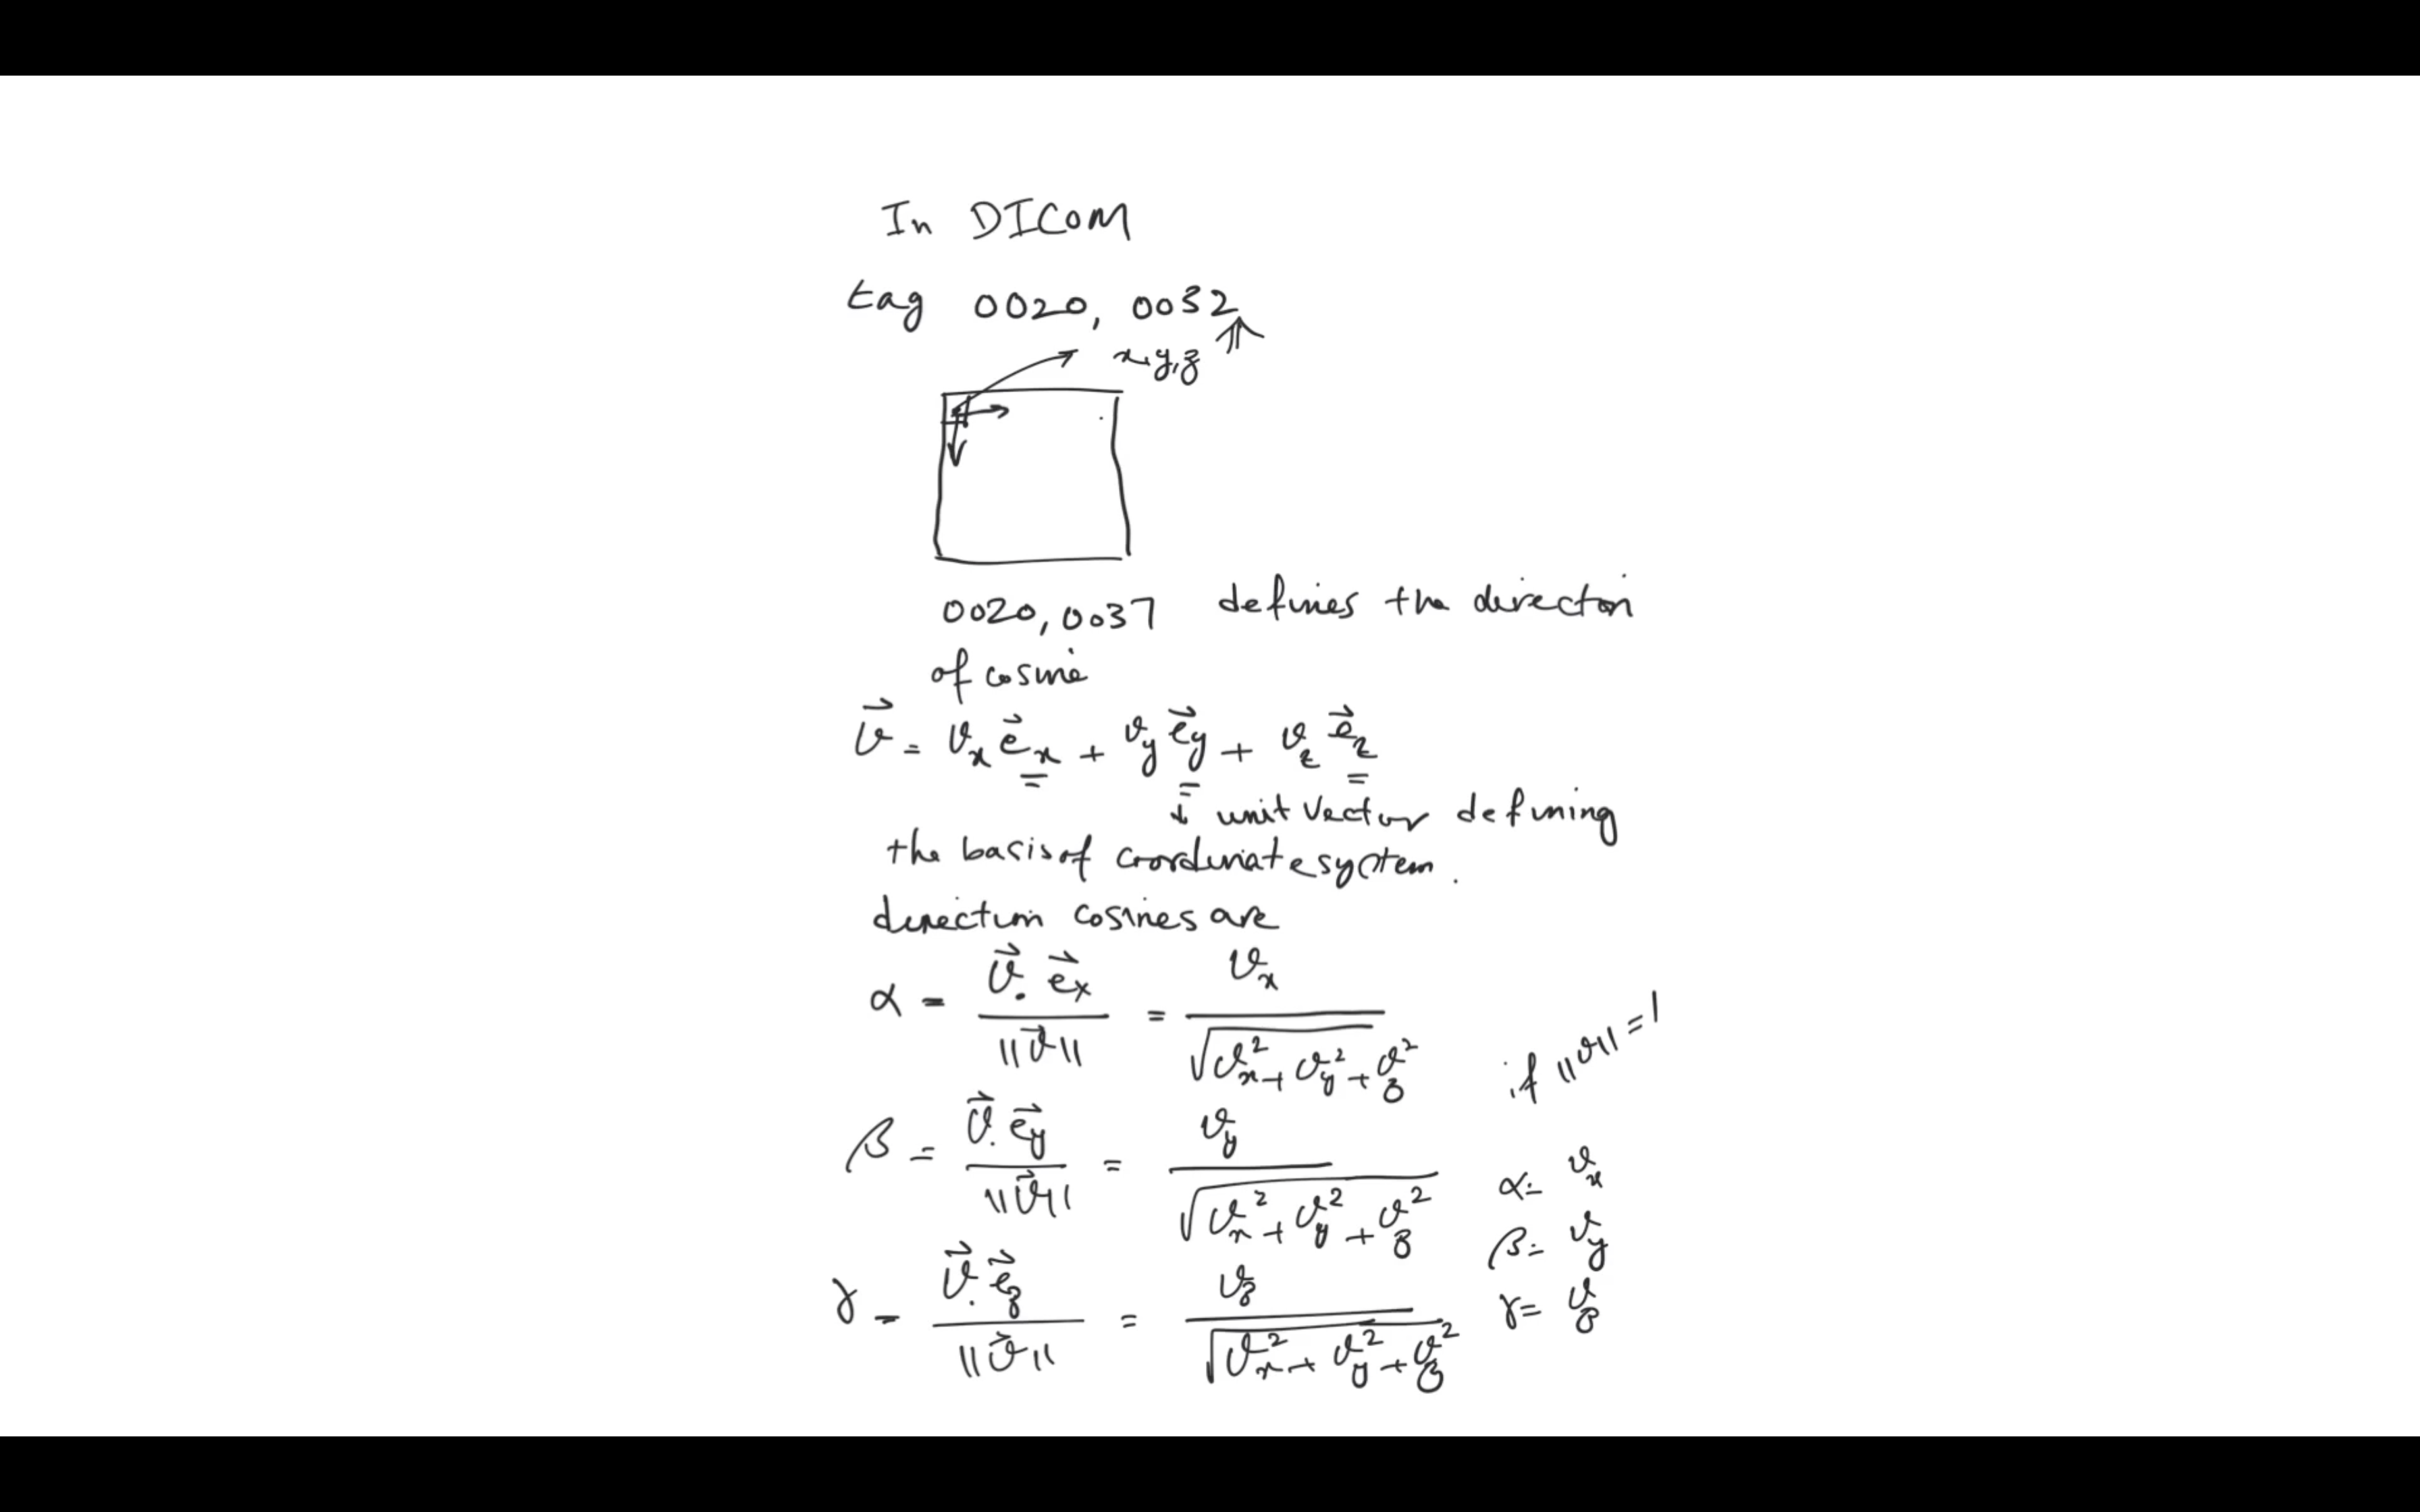 In DICOM
tag 0020, 0032
x,y,z
0020,0037 defines the direction
of cosine
v⃗ = vₓ e⃗ₓ + v_y e⃗_y + v_z e⃗_z
↓ unit vector defining
the basis of coordinate system.
direction cosines are
α = v⃗. e⃗ₓ / ||v⃗|| = vₓ / √(vₓ² + v_y² + v_z²)
if ||v|| = 1
β = v⃗. e⃗_y / ||v⃗|| = v_y / √(vₓ² + v_y² + v_z²)
α = vₓ
β = v_y
γ = v⃗. e⃗_z / ||v⃗|| = v_z / √(vₓ² + v_y² + v_z²)
γ = v_z